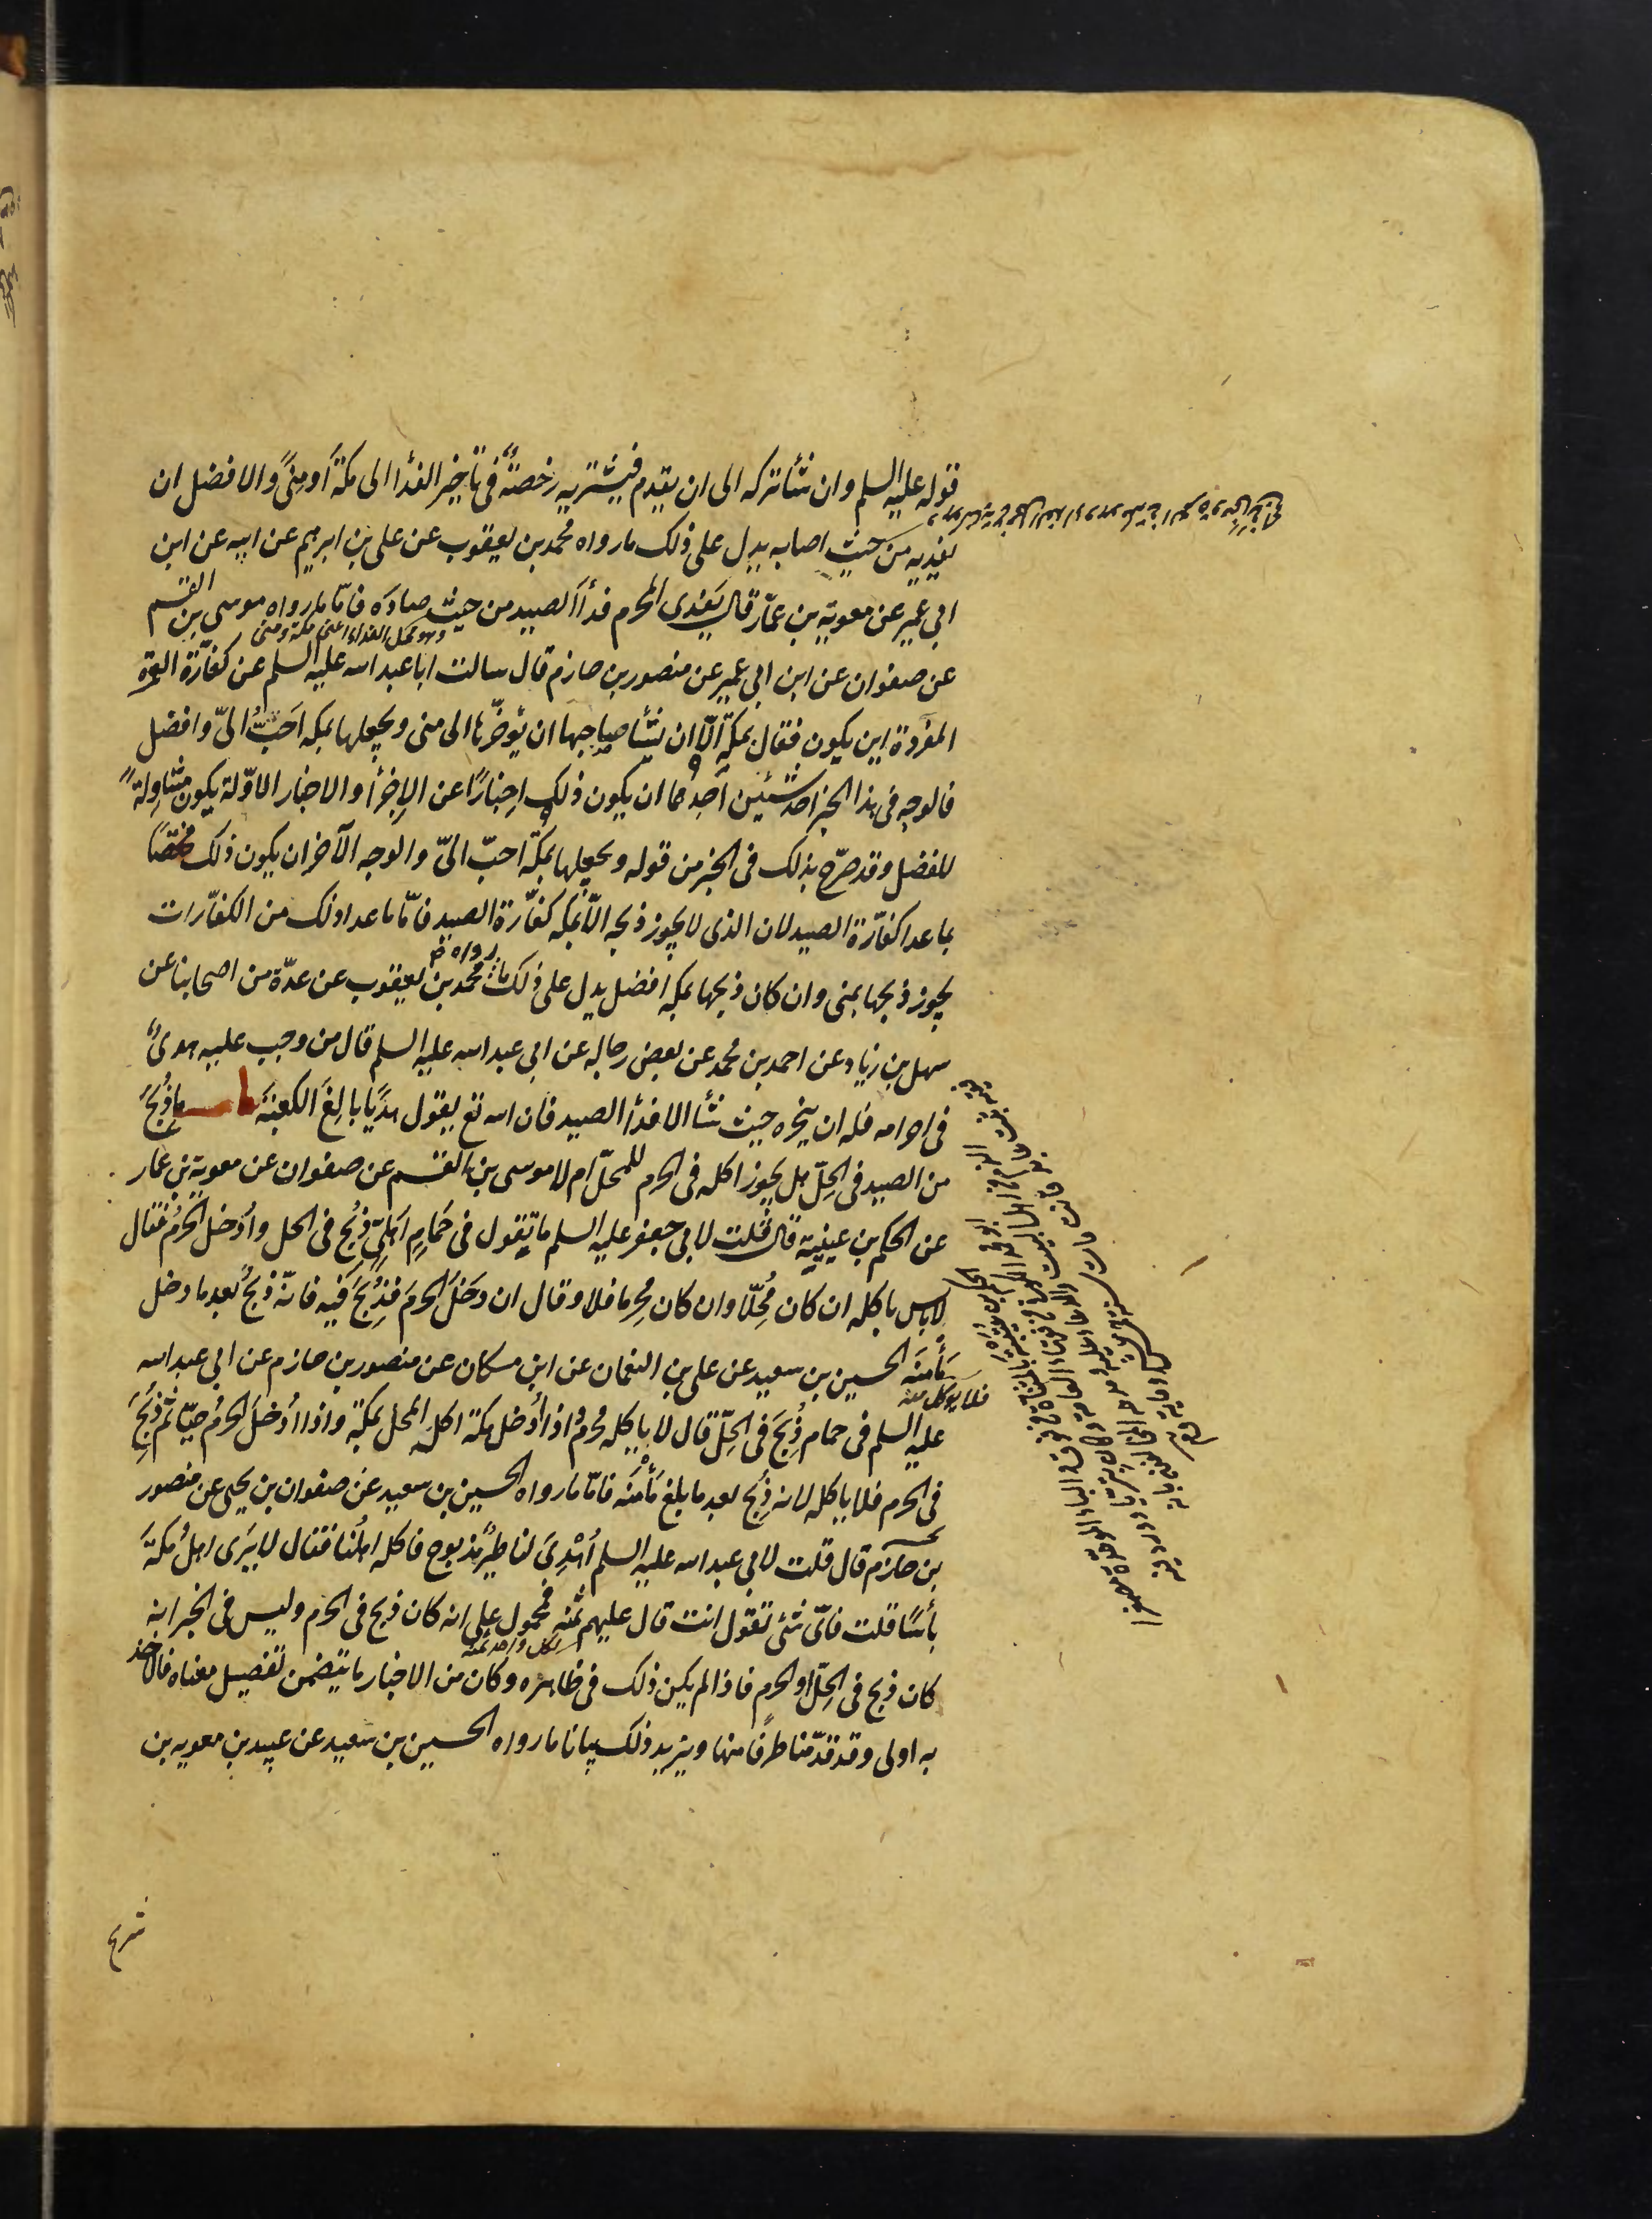 قوله عليه السلم وان شأ تركه الى ان يقدم فيشتريه رخصة في تأخير الفدأ الى مكة أو منى والافضل ان
يفديه من حيث اصابه يدل على ذلك ما رواه محمد بن يعقوب عن على بن ابرهيم عن ابيه عن ابن
ابي عمير عن معوية بن عمار قال يفدى المحرم فدأ الصيد من حيث صاده فامّا ما رواه موسى بن القسم
وهو محل الفداء اعنى مكة ومنى
عن صفوان عن ابن ابي عمير عن منصور بن حازم قال سالت ابا عبد الله عليه السلم عن كفّارة العمرة
المفردة اين يكون فقال بمكة الّا ان يشأ صاحبها ان يؤخّرها الى منى ويجعلها بمكه احبّ الىّ وافضل
فالوجه في هذا الخبر احد شيئين احدهما ان يكون ذلك اخبارًا عن الاجزأ والاخبار الاوّلة يكون متناولة
للفضل وقد صرّح بذلك في الخبر من قوله ويجعلها بمكة احبّ الىّ والوجه الآخر ان يكون ذلك مختصًا
بما عدا كفّارة الصيد لان الذى لا يجوز ذبحه الّا بمكه كفّارة الصيد فامّا ما عدا ذلك من الكفّارات
يجوز ذبحها بمنى وان كان ذبحها بمكه افضل يدل على ذلك ما رواه محمد بن يعقوب عن عدّة من اصحابنا عن
سهل بن زياد عن احمد بن محمد عن بعض رجاله عن ابي عبد الله عليه السلم قال من وجب عليه هدىٌ
في احرامه فله ان ينحره حيث شأ الا فدأ الصيد فان الله تع يقول هديًا بالغ الكعبة باب ما ذُبح
من الصيد في الحلّ هل يجوز اكله في الحرم للمحلّ ام لا موسى بن القسم عن صفوان عن معوية بن عمار
عن الحكم بن عيينة قال قلت لابي جعفر عليه السلم ما تقول في حمام اهلىّ ذُبح في الحل وأدخل الحرم فقال
لا باس باكله ان كان مُحِلّا وان كان مُحرما فلا وقال ان دخل الحرم فذُبح فيه فانّه ذُبح بعد ما دخل
مأمنه الحسين بن سعيد عن على بن النعمان عن ابن مسكان عن منصور بن حازم عن ابي عبد الله
فلا يوكل منه
عليه السلم في حمام ذُبح في الحلّ قال لا ياكله محرم واذا أدخل مكة اكله المحل بمكة واذا أدخل الحرم حيّا ثم ذُبح
في الحرم فلا ياكله لانه ذُبح بعد ما بلغ مأمنه فامّا ما رواه الحسين بن سعيد عن صفوان بن يحيى عن منصور
بن حازم قال قلت لابي عبد الله عليه السلم أُهدى لنا طير مذبوح فاكله اهلنا فقال لا يرى اهل مكة
بأسًا قلت فاىّ شئ تقول انت قال عليهم ثمنه فمحمول على انه كان ذبح في الحرم وليس في الخبر انه
لكل واحد ثمنه
كان ذبح في الحلّ او الحرم فاذا لم يكن ذلك في ظاهره وكان من الاخبار ما يتضمن تفصيل معناه فالاخذ
به اولى وقد قدّمنا طرفًا منها ويزيد ذلك بيانا ما رواه الحسين بن سعيد عن عبيد بن معويه بن
شريح